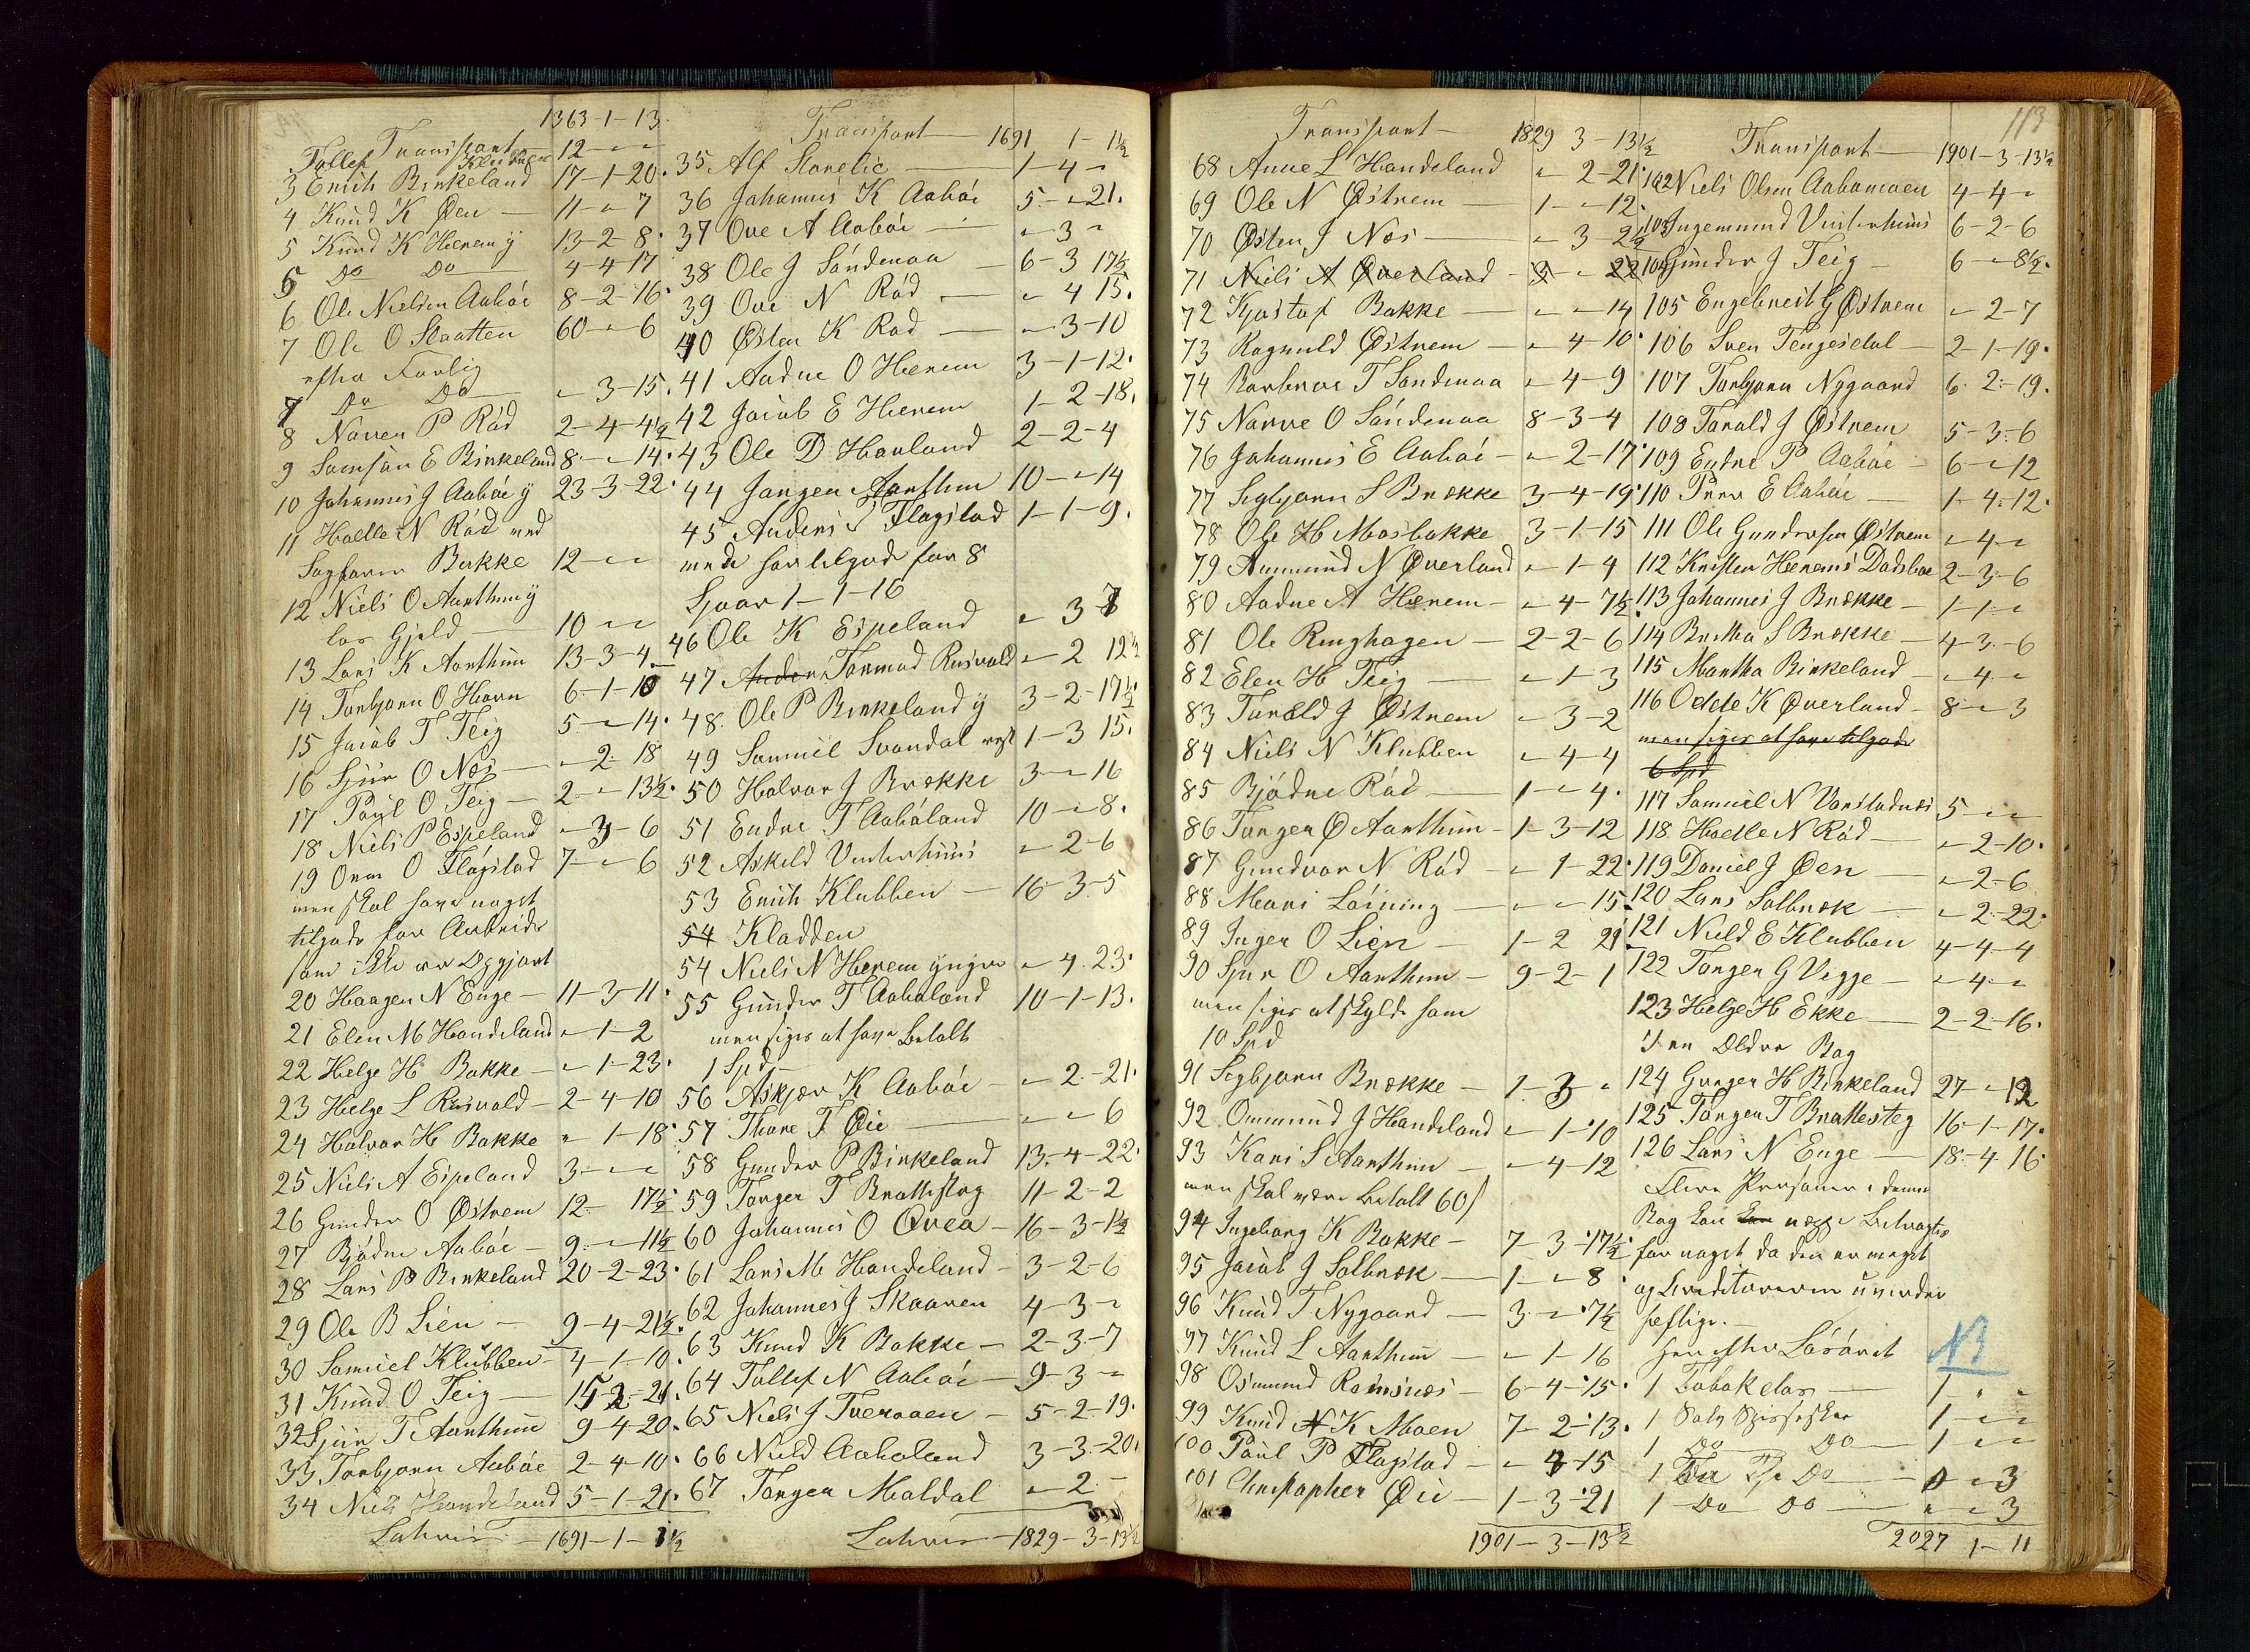 Transport 1363-1-13
Tollef Klubben 12- " "
3 Erich Birkeland 17-1-20
4 Knud K Øen 11- " 7
5 Knud K Hierem y 13-2-8
6 Do Do 4-4-17
6 Ole Nielsen Aabøe 8-2-16
7 Ole O Staatten 60- " 6
efter Forlig
7 Do Do " -3-15
8 Narven P Rød 2-4-4½
9 Samson E Birkeland 8- " -14
10 Johannes J Aabøe y 23-3-22
11 Hoelle N Rød med
Sagfører Bakke 12- " "
12 Niels O Aarthun y
los Gjeld 10 " "
13 Lars K Aarthun 13-3-4
14 Torbjørn O Havn 6-1-10
15 Jacob T Teig 5- " -14
16 Sjur O Næs " -2-18
17 Poul O Teig 2- " -13½
18 Niels P Espeland " -3-6
19 Orm O Fløgstad 7- " -6
men skal have noget
tilgode for Arbeide
som ikke er Opgjort
20 Haagen N Enge 11-3-11
21 Elen M Handeland " -1-2
22 Helge H Bakke " -1-23
23 Helge L Rusvold 2-4-10
24 Halvor H Bakke " -1-18
25 Niels A Espeland 3- " "
26 Gunder O Østrem 12- 17½
27 Bjødne Aabøe 9- " -11½
28 Lars P Birkeland 20-2-23
29 Ole B Lien 9-4-21½
30 Samuel Klubben 4-1-10
31 Knud O Teig 15-2-21
32 Sjur T Aarthun 9-4-20
33 Torbjørn Aabøe 2-4-10
34 Niels Handeland 5-1-21
Lateris 1691-1-1½
Transport 1691 1-1½
35 Alf Storelie 1-4- "
36 Johannes K Aabøe 5- " -21
37 Ove A Aabøe " -3 "
38 Ole J Søndenaa 6-3 17½
39 Ove N Rød " 4 15
40 Østen K Rød " -3-10
41 Aadne O Hierem 3-1-12
42 Jacob E Hierem 1-2-18
43 Ole D Havland 2-2-4
44 Jørgen Aarthun 10- " -14
45 Anders S Fløgstad 1-1-9
men har tilgode for 8
Sjaar 1-1-16
46 Ole K Espeland " 3 7
47 Tormod Rusvold " 2 12½
48 Ole P Birkeland y 3-2-17½
49 Samuel Svandal rest 1-3 15
50 Halvor J Brekke 3- " -16
51 Endre T Aabøland 10- " -8
52 Askild Vinterhuus " -2-6
53 Erich Klubben 16-3-5
54 Kladden
54 Niels N Hierem yngre " -4 23
55 Gunder T Aabøland 10-1-13
men siges at have Betalt
1 Spd
56 Askjer K Aabøe " -2-21
57 Thore T Øie " " 6
58 Gunder P Birkeland 13-4-22
59 Torger T Brattesteg 11-2-2
60 Johannes O Qvea 16-3-1½
61 Lars M Handeland 3-2-6
62 Johannes J Skaaren 4-3- "
63 Knud K Bakke 2-3-7
64 Tollef N Aabøe 9-3- "
65 Niels J Tveraaen 5-2-19
66 Nield Aabøland 3-3-20
67 Torger Maldal " -2-
Lateris 1829-3-13½
113
Transport 1829 3-13½
68 Anne L Handeland " 2-21
69 Ole N Østrem 1- " -12
70 Østen J Næs " 3-2½
71 Niels A Øverland 3- " 22
72 Kjøstof Bakke " " 14
73 Ragnvald Østrem " 4-10
74 Barbroe T Søndenaa " -4-9
75 Narve O Søndenaa 8-3-4
76 Johannes E Aabøe " -2-17
77 Segbjørn S Brekke 3-4-19
78 Ole H Mosbakke 3-1-15
79 Aamund N Øverland " -1-4
80 Aadne A Hierem " -4-7½
81 Ole Ringhagen 2-2-6
82 Elen H Teig " 1-3
83 Torald J Østrem " -3-2
84 Niels N Klubben " -4-4
85 Bjødne Rød 1- " 4
86 Torger O Aarthun 1-3-12
87 Gundvor N Rød " 1-22
88 Mari Løining " " 15
89 Inger O Lien 1-2 21
90 Sjur O Aarthun 9-2-1
men siges at skylde som
10 Spd
91 Segbjørn Brekke 1-3 "
92 Ommund J Handeland " -1-10
93 Kari S Aarthun " -4-12
men skal være Betalt 60 s
94 Ingeborg K Bakke 7-3-17½
95 Jacob J Solbræk 1- " 8
96 Knud T Nygaard 3- " 7½
97 Knud L Aarthun " -1-16
98 Osmund Ramsnæs 6-4-15
99 Knud K Moen 7-2-13
100 Poul P Fløgstad " 4-15
101 Christopher Øie 1-3-21
1901-3-13½
Transport 1901-3-13½
102 Niels Olsen Aabømoen 4-4- "
103 Ingemund Vinterhuus 6-2-6
104 Gunder J Teig 6 " 8½
105 Engebreth G Østrem " 2-7
106 Sven Tengesdal 2-1-19
107 Torbjørn Nygaard 6 2-19
108 Torald J Østrem 5-3-6
109 Endre P Aabøe 6 " 12
110 Peer E Aabøe 1-4-12
111 Ole Gundersen Østrem " -4- "
112 Kristen Hierems Dødsboe 2-3-6
113 Johannes J Brekke 1-1- "
114 Bertha S Brekke 4-3-6
115 Martha Birkeland " 4- "
116 Odde K Øverland 8- " 3
men siges at have tilgode
6 Spd
117 Samuel N Vanstadnæs 5 " "
118 Hoelle N Rød " 2-10
119 Daniel J Øen " -2-6
120 Lars Solbræk " 2-22
121 Nield E Klubben 4-4-4
122 Torger G Vigge " -4- "
123 Helge H Ekke 2-2-16
I en Ældre Bog
124 Gunger H Birkeland 27- " 12
125 Torger T Brattesteg 16-1-17
126 Lars N Enge 18-4 16
Flere Personer i denne
Bog kan neppe Betragtes
for noget da den er meget
og Creditorerne uvurder
heftige.
Har efter Løsøret NB
1 Tobaksdos 1 " "
1 Sølv Spiseskee 1- " "
1 Do Do 1 " "
1 Do " " 3
1 Do Do " " 3
2027 1-11